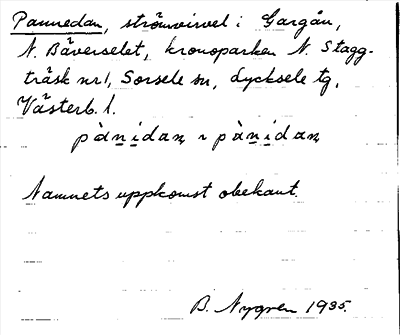 Pannedan, strömvirvel i Gargån,
N. Bäverselet, kronoparken N. Stagg-
träsk nr 1, Sorsele sn, Lycksele tg,
Västerb. l.
pànidaṇ ~ pànidaṇ
Namnets uppkomst obekant.
B. Nygren 1935.